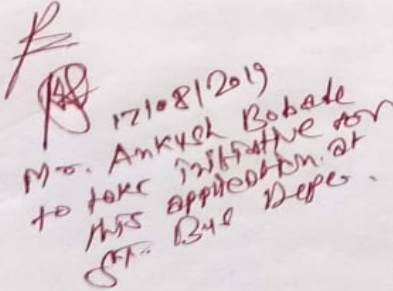 17/08/2019
Mr. Ankush Bobade
to take initiative for
this application at
ST. Bus Depo.